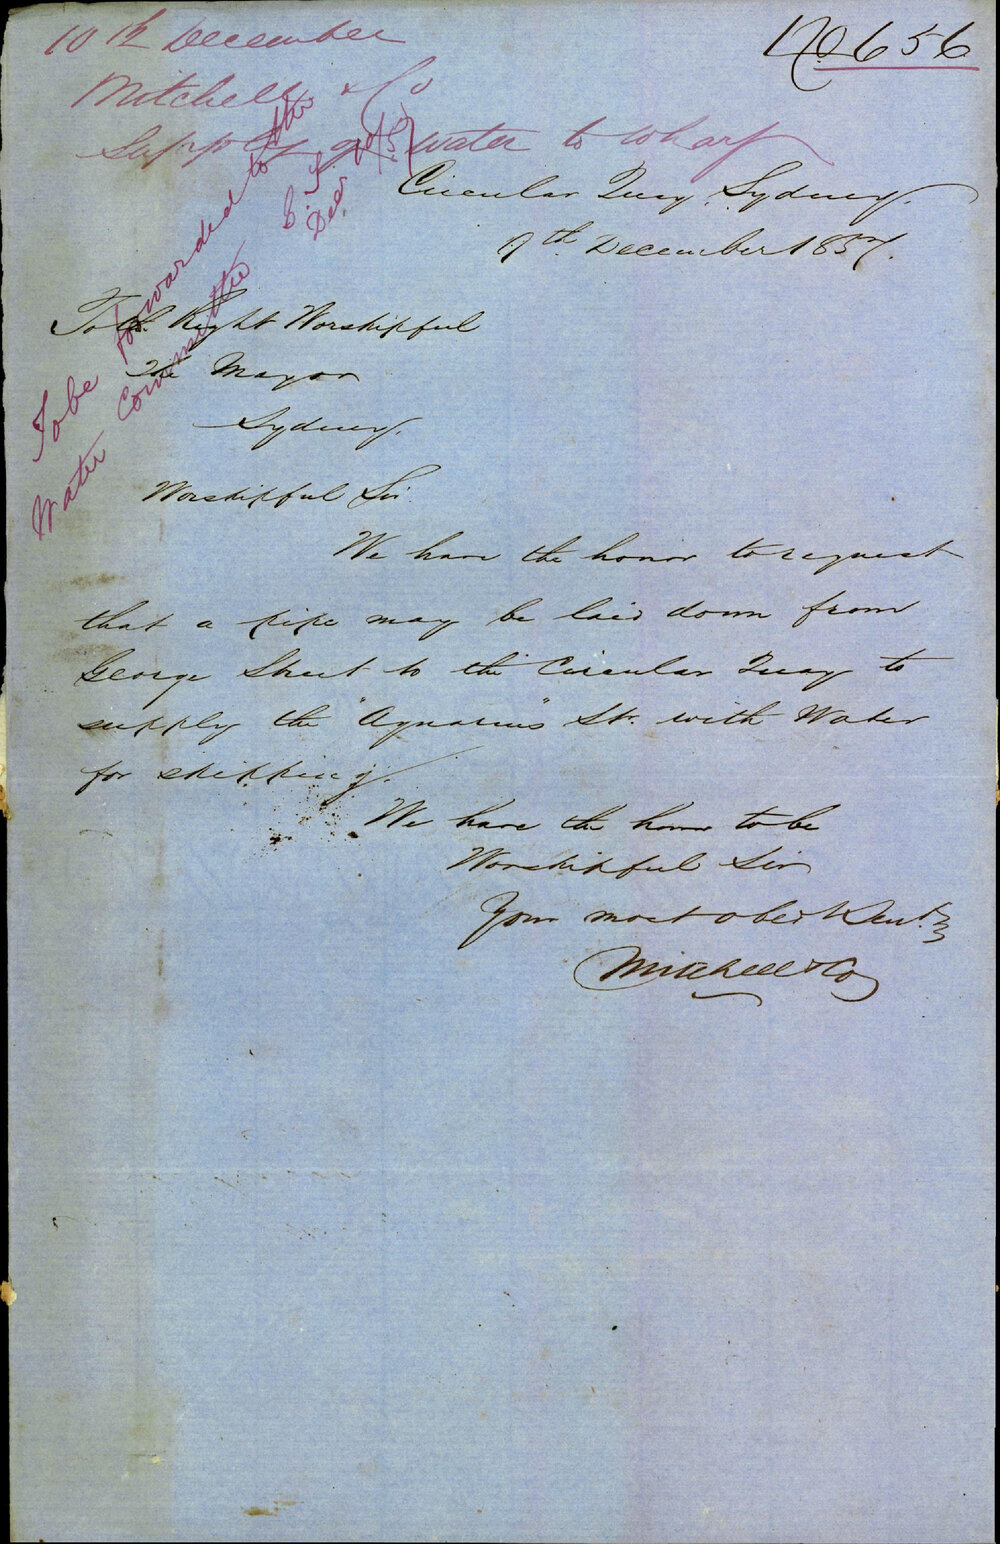 10th December
Mitchell & Co
Supply of water to wharf
No 656
To be forwarded to the
Water Committee
Circular Quay, Sydney.
9th December 1857.
To the Right Worshipful
The Mayor
Sydney.
Worshipful Sir.
We have the honor to request
that a pipe may be laid down from
George Street to the Circular Quay to
supply the "Aquarius" St. with Water
for shipping.
We have the honor to be
Worshipful Sir
Your most obedt Servt.
Mitchell & Co